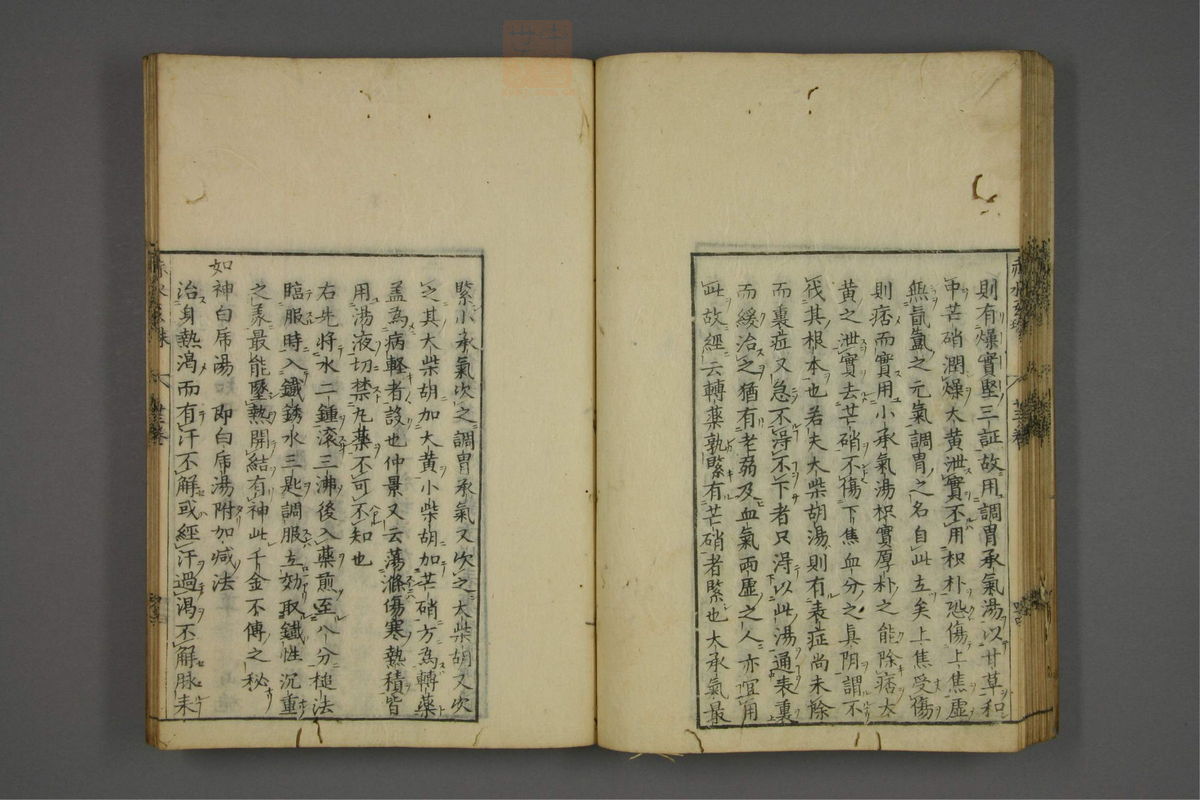 則有燥實堅三証故用調胃承氣湯以甘草和
中芒硝潤燥大黃泄實不用枳朴恐傷上焦虛
無氤氳之元氣調胃之名自此立矣上焦受傷
則痞而實用小承氣湯枳實厚朴之能除痞大
黃之泄實去芒硝不傷下焦血分之真阴謂不
伐其根本也若夫大柴胡湯則有表症尚未除
而裏症又急不得不下者只得以此湯通表裏
而緩治之猶有老弱及血氣兩虛之人亦宜用
此故經云轉藥孰緊有芒硝者緊也大承氣最
緊小承氣次之調胃承氣又次之大柴胡又次
之其大柴胡加大黃小柴胡加芒硝方為轉藥
盖為病輕者設也仲景又云蕩滌傷寒熱積皆
用湯液切禁丸藥不可不知也
右先將水二鍾滚三沸後入藥煎至八分槌法
臨服時入鐵銹水三匙調服立効取鐵性沉重
之義最能墜熱開結有神此千金不傳之秘
如神白虎湯 即白虎湯附加減法
治身熱渴而有汗不解或經汗過渴不解脉来